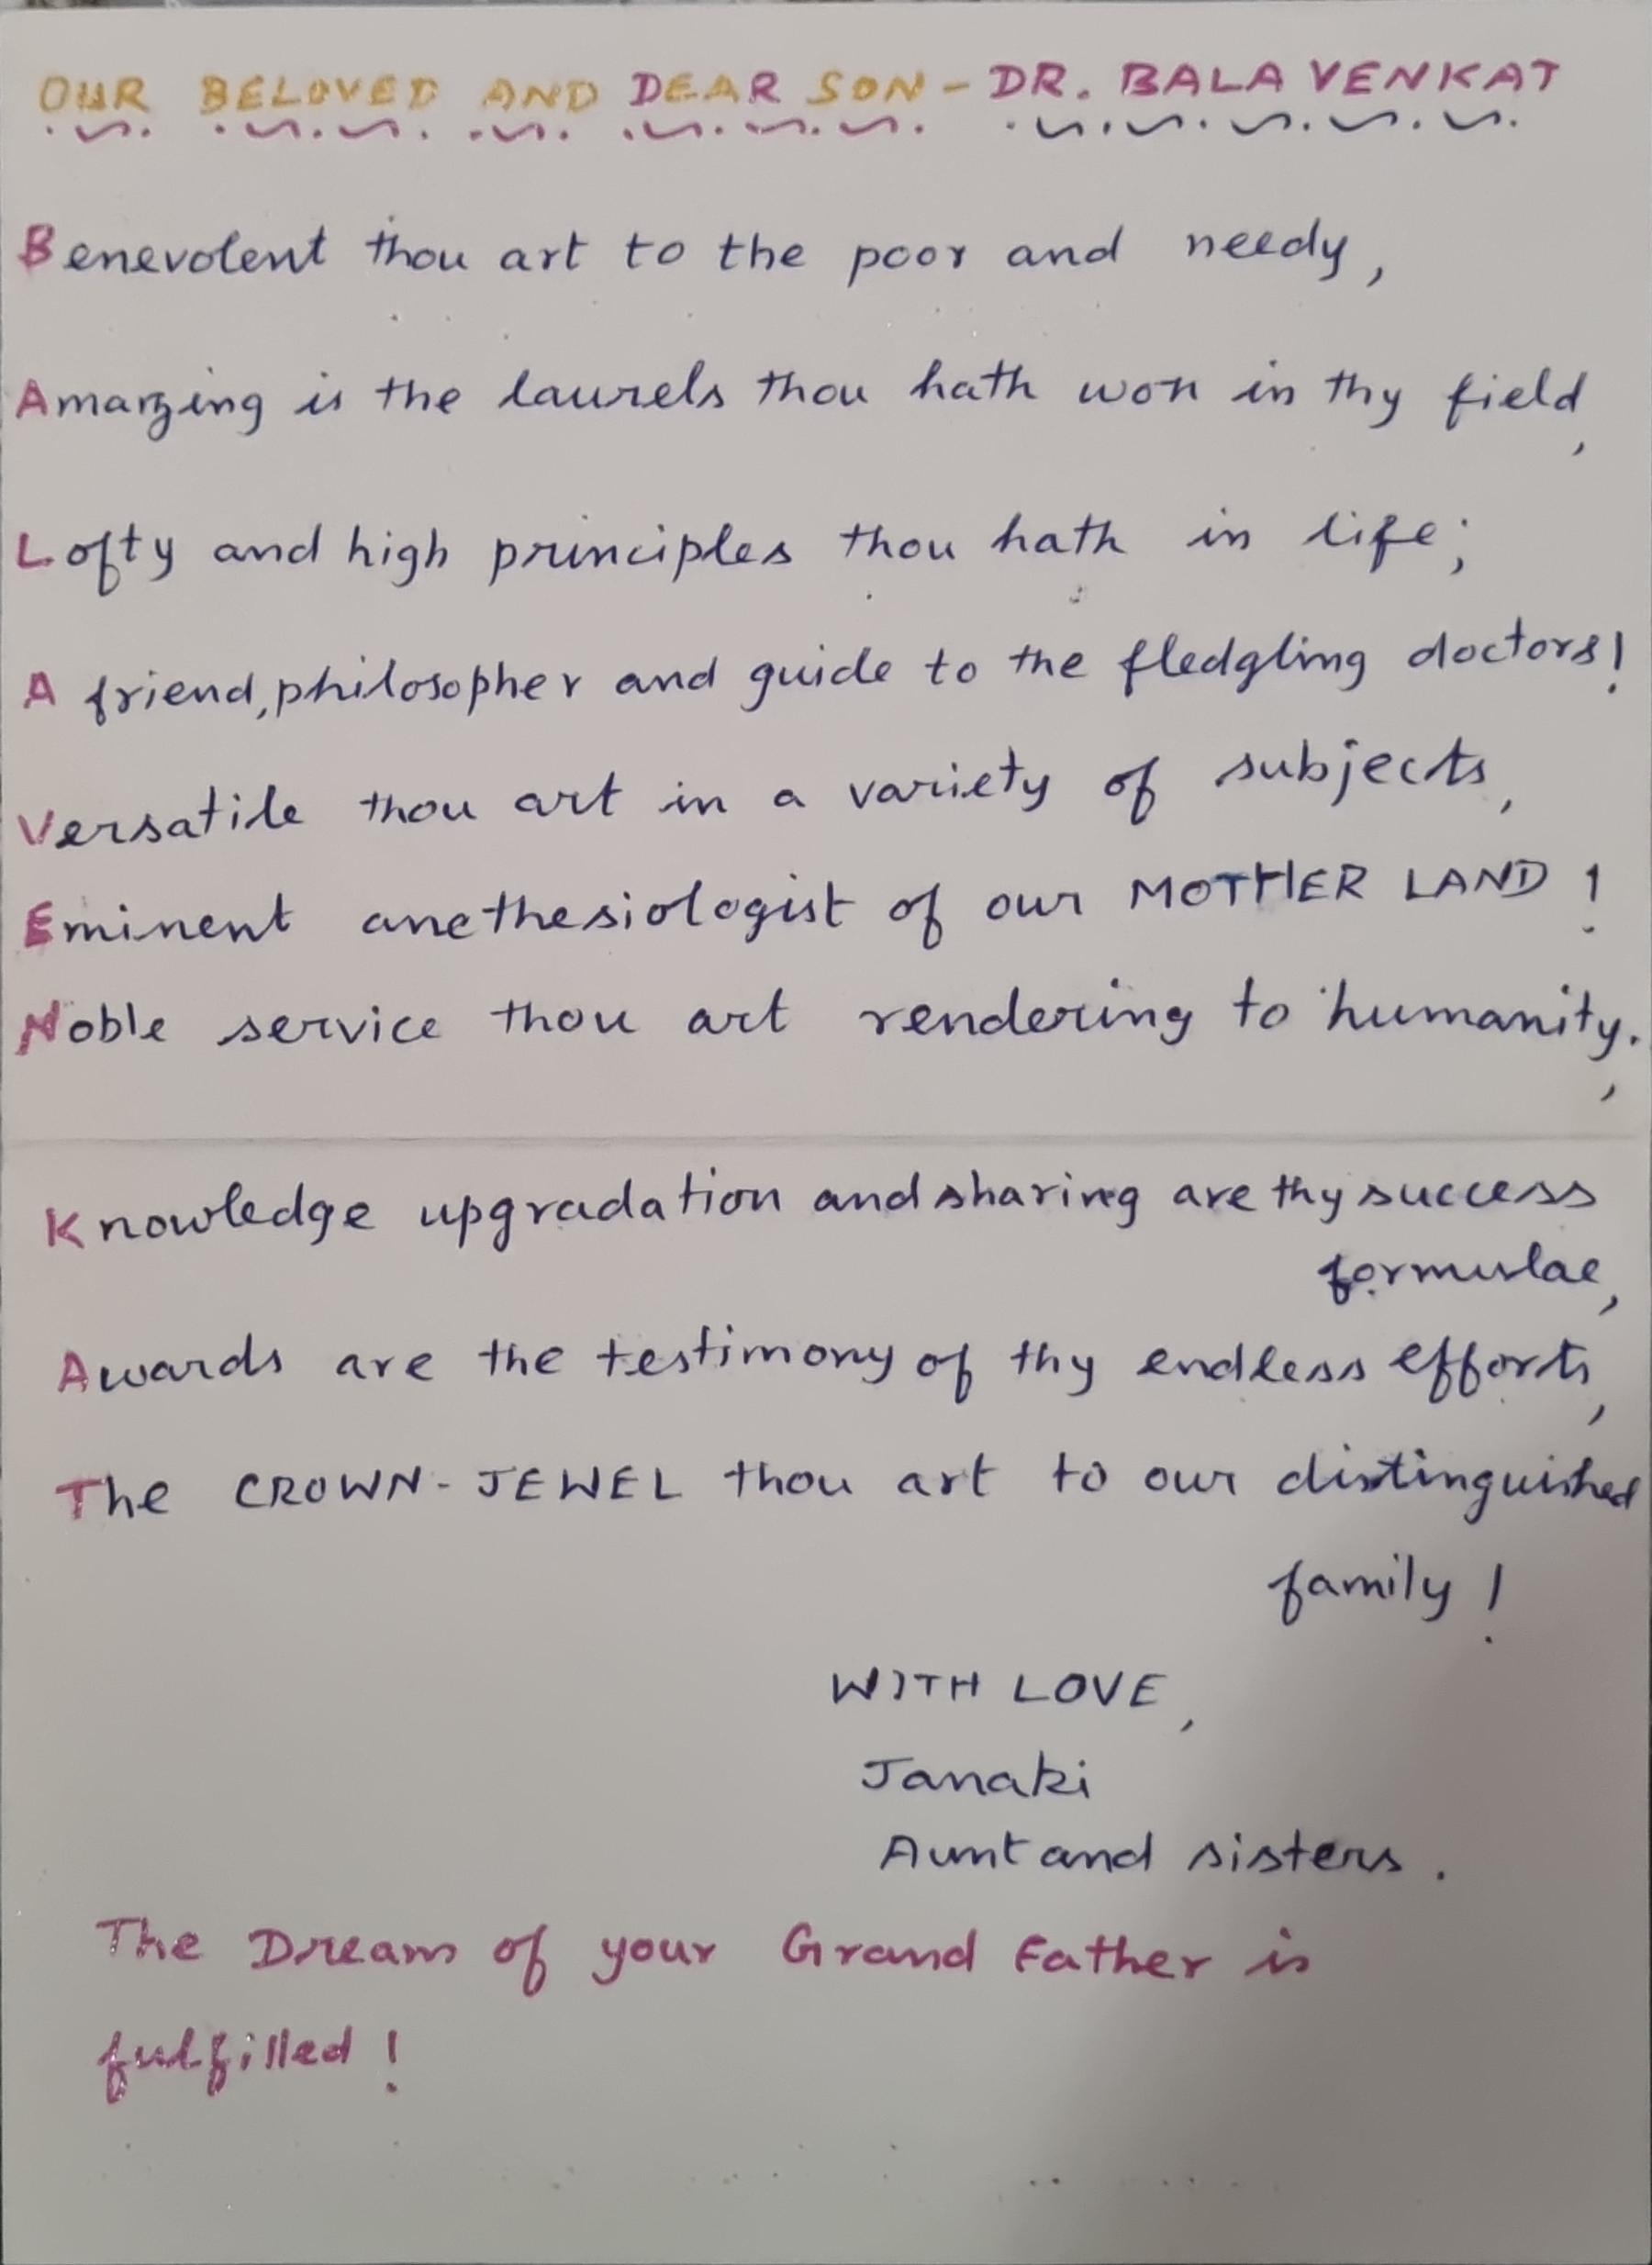 OUR BELOVED AND DEAR SON - DR. BALA VENKAT
Benevolent thou art to the poor and needy,
Amazing is the laurels thou hath won in thy field,
Lofty and high principles thou hath in life;
A friend, philosopher and guide to the fledgling doctors!
Versatile thou art in a variety of subjects,
Eminent anethesiologist of our MOTHER LAND !
Noble service thou art rendering to humanity.,
Knowledge upgradation and sharing are thy success
formulae,
Awards are the testimony of thy endless efforts,
The CROWN-JEWEL thou art to our distinguished
family !
WITH LOVE,
Janaki
Aunt and sisters.
The Dream of your Grand Father is
fulfilled !